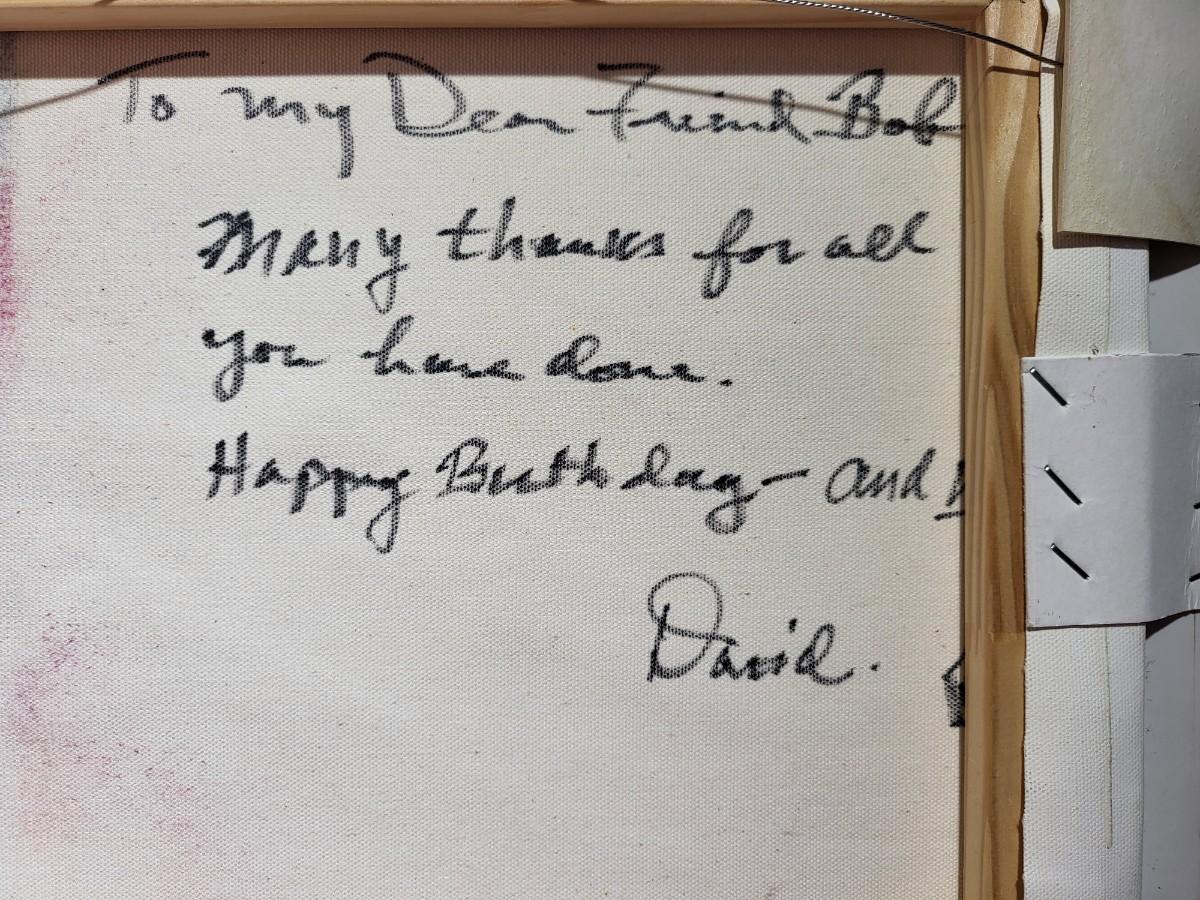 To my Dear Friend Bob
Many thanks for all
you have done.
Happy Birthday - and
David.